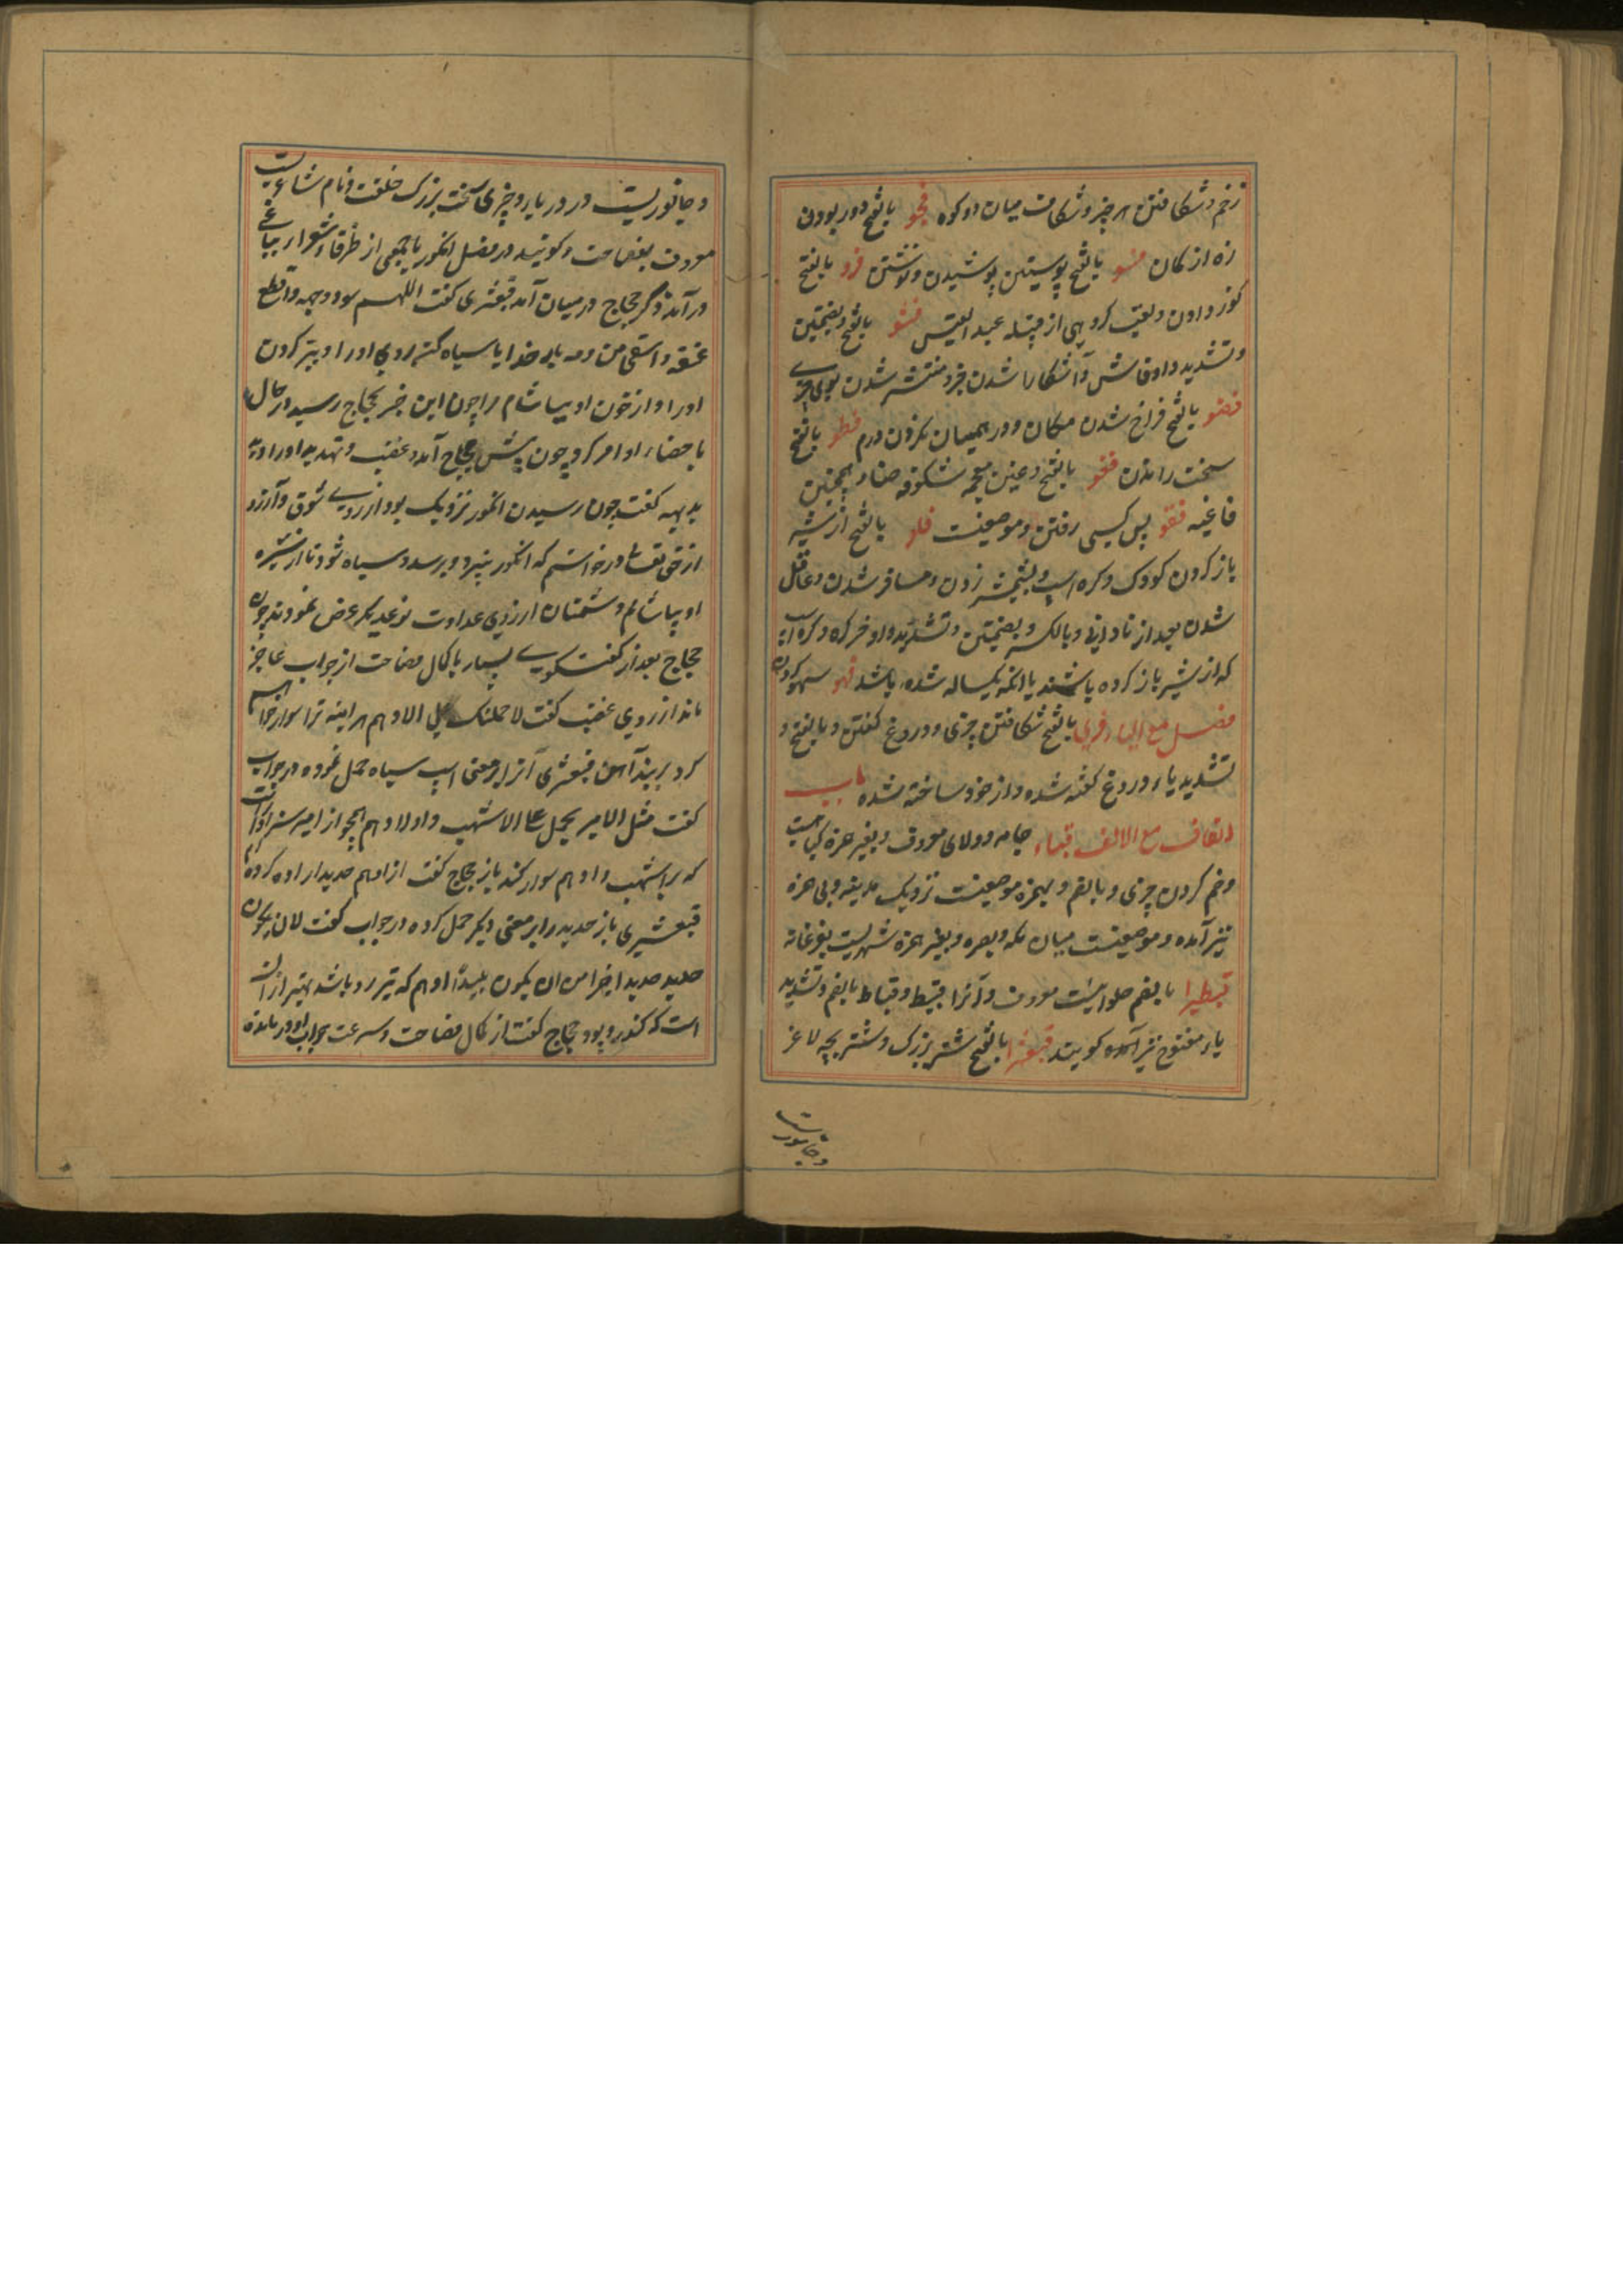 زخم و شکافتن هر چیز و شکاف میان دو کوه فجو بالفتح دور بودن
زه از کمان فسو بالفتح پوستین پوشیدن و نوشتن فرو بالفتح
کوز دادن و لقب کروهی از قبیله عبد القیس فشو بالفتح و بضمتین
و تشدید واو فاش و آشکارا شدن خبر و منتشر شدن بوی چیزی
فضو بالفتح فراخ شدن مکان و در همیان نکردن درم فطو بالفتح
سخت راندن فغو بالفتح و غین معجمه شکوفه حناء همچنین
فاغیه فقو پس کسی رفتن و موضعیست فلو بالفتح از شیر
باز کردن کودک و کره اسپ و بشمشیر زدن و مسافر شدن و عاقل
شدن بعد از نادانی و بالکسر و بضمتین و تشدید واو خر کره و کره اسپ
که از شیر باز کرده باشند یا انکه یکساله شده باشد فهو سهو کردن
فصل مع الیاء فری بالفتح شکافتن چیزی و دروغ گفتن و بالفتح و
تشدید یاء دروغ گفته شده و از خود ساخته شده باب
القاف مع الالف قباء جامه دولای معروف و بغیر همزه کیاهیست
و خم کردن چیزی و بالضم و بهمزه موضعیست نزدیک مدینه و بی همزه
نیز آمده و موضعیست میان مکه و بصره و بغیر همزه شهریست بفرغانه
قبیطرا بالضم حلوائیست معروف و آنرا قبیط و قباط بالضم و تشدید
یاء مفتوح نیز آمده کویند قبعثرا بالفتح شتر بزرک و شتر بچه لاغر
و جانوریست
و جانوریست در دریا و چیزی سخت بزرک خلقت و نام شاعریست
معروف بفصاحت و کویند در فصل انکور با جمعی از ظرفا و شعرا ببباغی
در آمد ذکر حجاج در میان آمد قبعثری کفت اللهم سود وجهه واقطع
عنقه واسقنی من دمه بار خدایا سیاه کن روی او را و ببر کردن
او را و از خون او بیاشام مرا چون این خبر بحجاج رسید در حال
باحضار او امر کرد چون پیش حجاج آمد و غضب و تهدید او را دید
بدیهه کفت چون رسیدن انکور نزدیک بود از روی شوق و آرزو
از حق تعالی در خواستم که انکور ببرد و برسد و سیاه شود تا از شیره
او بیاشام و دشمنان از روی عداوت نوعدیکر عرض نمودند چون
حجاج بعد از کفتکوی بسیار با کمال فصاحت از جواب عاجز
ماند از روی غضب کفت لاحملنک علی الادهم هر اینه ترا سوار خواهم
کرد بر بند آهن قبعثری آنرا بر معنی اسپ سیاه حمل نموده در جواب
کفت مثل الامیر یحمل علی الاشهب و الادهم همچو از امیر سزاوار است
که بر اشهب و ادهم سوار کند باز حجاج کفت از ادهم حدید اراده کرده‌ام
قبعثری باز حدید را بر معنی دیکر حمل کرده در جواب کفت لان یکون
حدید حدیدا خیرا من ان یکون بلیدا ادهم که تیز رو باشد بهتر از ان
است که کند رو بود حجاج کفت از کمال فصاحت و سرعت جواب او در مانده